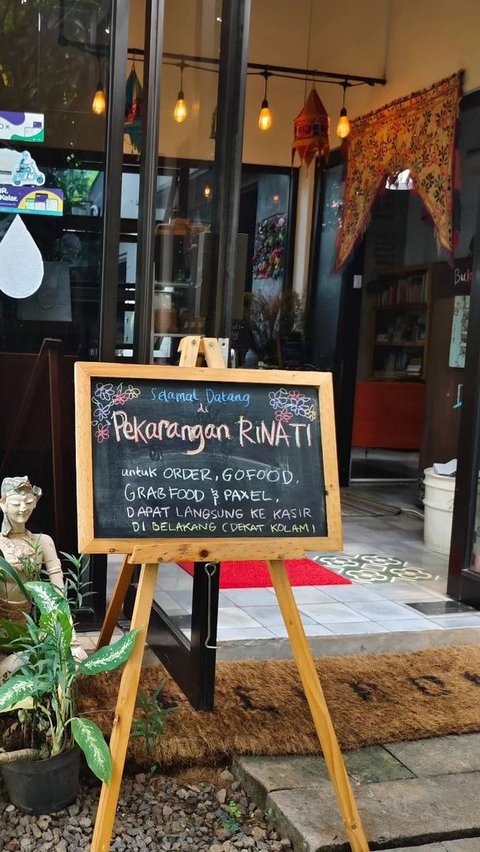 Selamat Datang
di
Pekarangan RINATI
untuk ORDER, GOFOOD,
GRABFOOD & PAXEL,
DAPAT LANGSUNG KE KASIR
DI BELAKANG (DEKAT KOLAM)
Buk